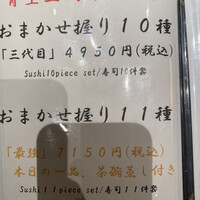 おまかせ握り10種
「三代目」4950円(税込)
Sushi10piece set/寿司10件套
おまかせ握り11種
「最強」7150円(税込)
本日の一品、茶碗蒸し付き
Sushi11piece set/寿司11件套